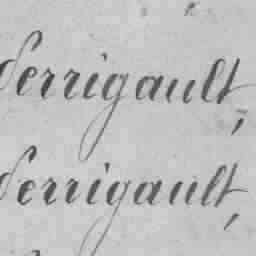 Derrigault,
Derrigault,